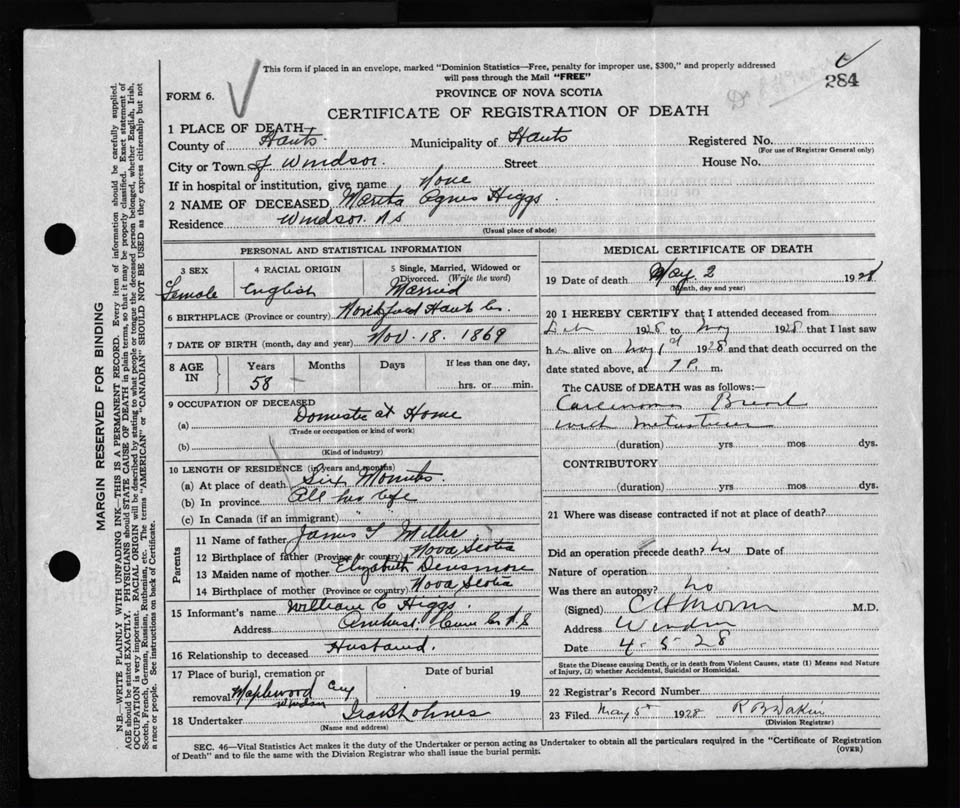 This form if placed in an envelope, marked "Dominion Statistics—Free, penalty for improper use, $300," and properly addressed
will pass through the Mail "FREE"
284
FORM 6.
PROVINCE OF NOVA SCOTIA
CERTIFICATE OF REGISTRATION OF DEATH
1 PLACE OF DEATH—
County of Hants Municipality of Hants Registered No.
(For use of Registrar General only)
City or Town of Windsor Street House No.
If in hospital or institution, give name None
2 NAME OF DECEASED Martha Agnes Higgs
Residence Windsor N S
(Usual place of abode)
PERSONAL AND STATISTICAL INFORMATION
3 SEX 4 RACIAL ORIGIN 5 Single, Married, Widowed or Divorced. (Write the word)
Female English Married
6 BIRTHPLACE (Province or country) Hants Co.
7 DATE OF BIRTH (month, day and year) Nov. 18. 1869
8 AGE IN Years Months Days If less than one day,
58 – hrs. or min.
9 OCCUPATION OF DECEASED
(a) Domestic at Home
(Trade or occupation or kind of work)
(b)
(Kind of industry)
10 LENGTH OF RESIDENCE (in years and months)
(a) At place of death Six Months
(b) In province All her life
(c) In Canada (if an immigrant) " "
Parents
11 Name of father James T Miller
12 Birthplace of father (Province or country) Nova Scotia
13 Maiden name of mother Elizabeth Densmore
14 Birthplace of mother (Province or country) Nova Scotia
15 Informant's name William C Higgs
Address Amherst. Cum Co N S
16 Relationship to deceased Husband.
17 Place of burial, cremation or Date of burial
removal Maplewood Cey 19
Windsor
18 Undertaker
(Name and address)
MEDICAL CERTIFICATE OF DEATH
19 Date of death May 2 1928
(Month, day and year)
20 I HEREBY CERTIFY that I attended deceased from
Feb 1928 to May 1928 that I last saw
her alive on May 1st 1928 and that death occurred on the
date stated above, at 7 P. m.
The CAUSE of DEATH was as follows:—
Carcinoma Breast
with metastases
(duration) yrs mos dys.
CONTRIBUTORY
(duration) yrs mos dys.
21 Where was disease contracted if not at place of death?
Did an operation precede death? no Date of
Nature of operation
Was there an autopsy? no
(Signed) M.D.
Address Windsor
Date 4-5-28
State the Disease causing Death, or in death from Violent Causes, state (1) Means and Nature
of Injury, (2) whether Accidental, Suicidal or Homicidal.
22 Registrar's Record Number
23 Filed May 5th 1928
(Division Registrar)
SEC. 46—Vital Statistics Act makes it the duty of the Undertaker or person acting as Undertaker to obtain all the particulars required in the "Certificate of Registration
of Death" and to file the same with the Division Registrar who shall issue the burial permit.
(OVER)
MARGIN RESERVED FOR BINDING
N.B.—WRITE PLAINLY WITH UNFADING INK—THIS IS A PERMANENT RECORD. Every item of information should be carefully supplied.
AGE should be stated EXACTLY. PHYSICIANS should STATE CAUSE OF DEATH in plain terms, so that it may be properly classified. Exact statement of
OCCUPATION is very important. RACIAL ORIGIN will be described by stating to what people or tongue the deceased person belonged, whether English, Irish,
Scotch, French, German, Russian, Ruthenian, etc. The terms "AMERICAN" or "CANADIAN" SHOULD NOT BE USED as they express citizenship but not
a race or people. See instructions on back of Certificate.